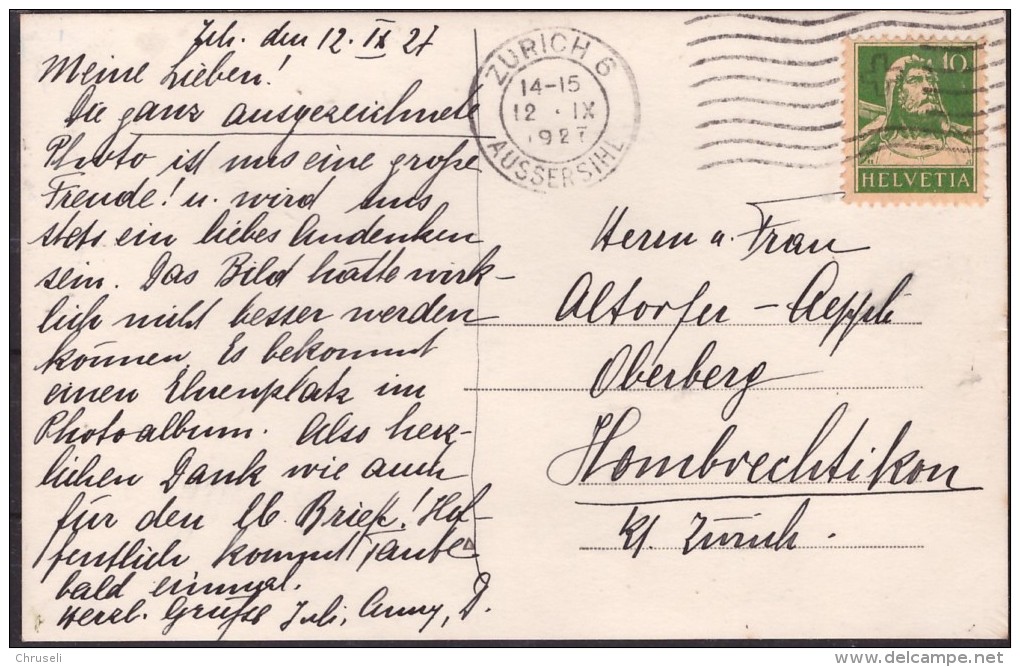 Zch. den 12. IX 27
Meine Lieben!
Die ganz ausgezeichnete
Photo ist uns eine große
Freude! u. wird uns
stets ein liebes Andenken
sein. Das Bild hätte wirk-
lich nicht besser werden
können. Es bekommt
einen Ehrenplatz im
Photoalbum. Also herz-
lichen Dank wie auch
für den lb. Brief! Hof-
fentlich kommt
bald einmal.
Herzl. Grüße
ZÜRICH 6
14-15
12 . IX
1927
AUSSERSIHL
10
HELVETIA
Herrn u. Frau
Altorfer - Aeppli
Oberberg
Hombrechtikon
Kt. Zürich.
Chruseli
delcampe.net